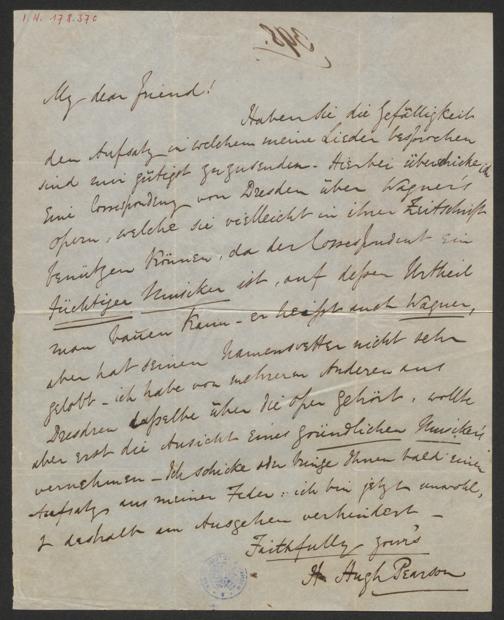 I.N. 178.370
My dear friend!
Haben Sie die Gefälligkeit
den Aufsatz in welchem meine Lieder besprochen
sind mir gütigst zuzusenden - Hierbei überschicke ich
Eine Correspondenz von Dresden über Wagner's
Opern, welche sie vielleicht in ihrer Zeitschrift
benützen können, da der Correspondent ein
tüchtiger Musiker ist, auf deßen Urtheil
man bauen kann - er heißt auch Wagner,
aber hat seinen Namensvetter nicht sehr
gelobt - ich habe von mehreren Anderen aus
Dresden daßelbe über die Oper gehört, wollte
aber erst die Ansicht Eines gründlichen Musiker's
vernehmen - Ich schicke oder bringe Ihnen bald einen
Aufsatz aus meiner Feder: ich bin jetzt unwohl,
& deshalb am Ausgehen verhindert -
Faithfully yours
H Hugh Pearson